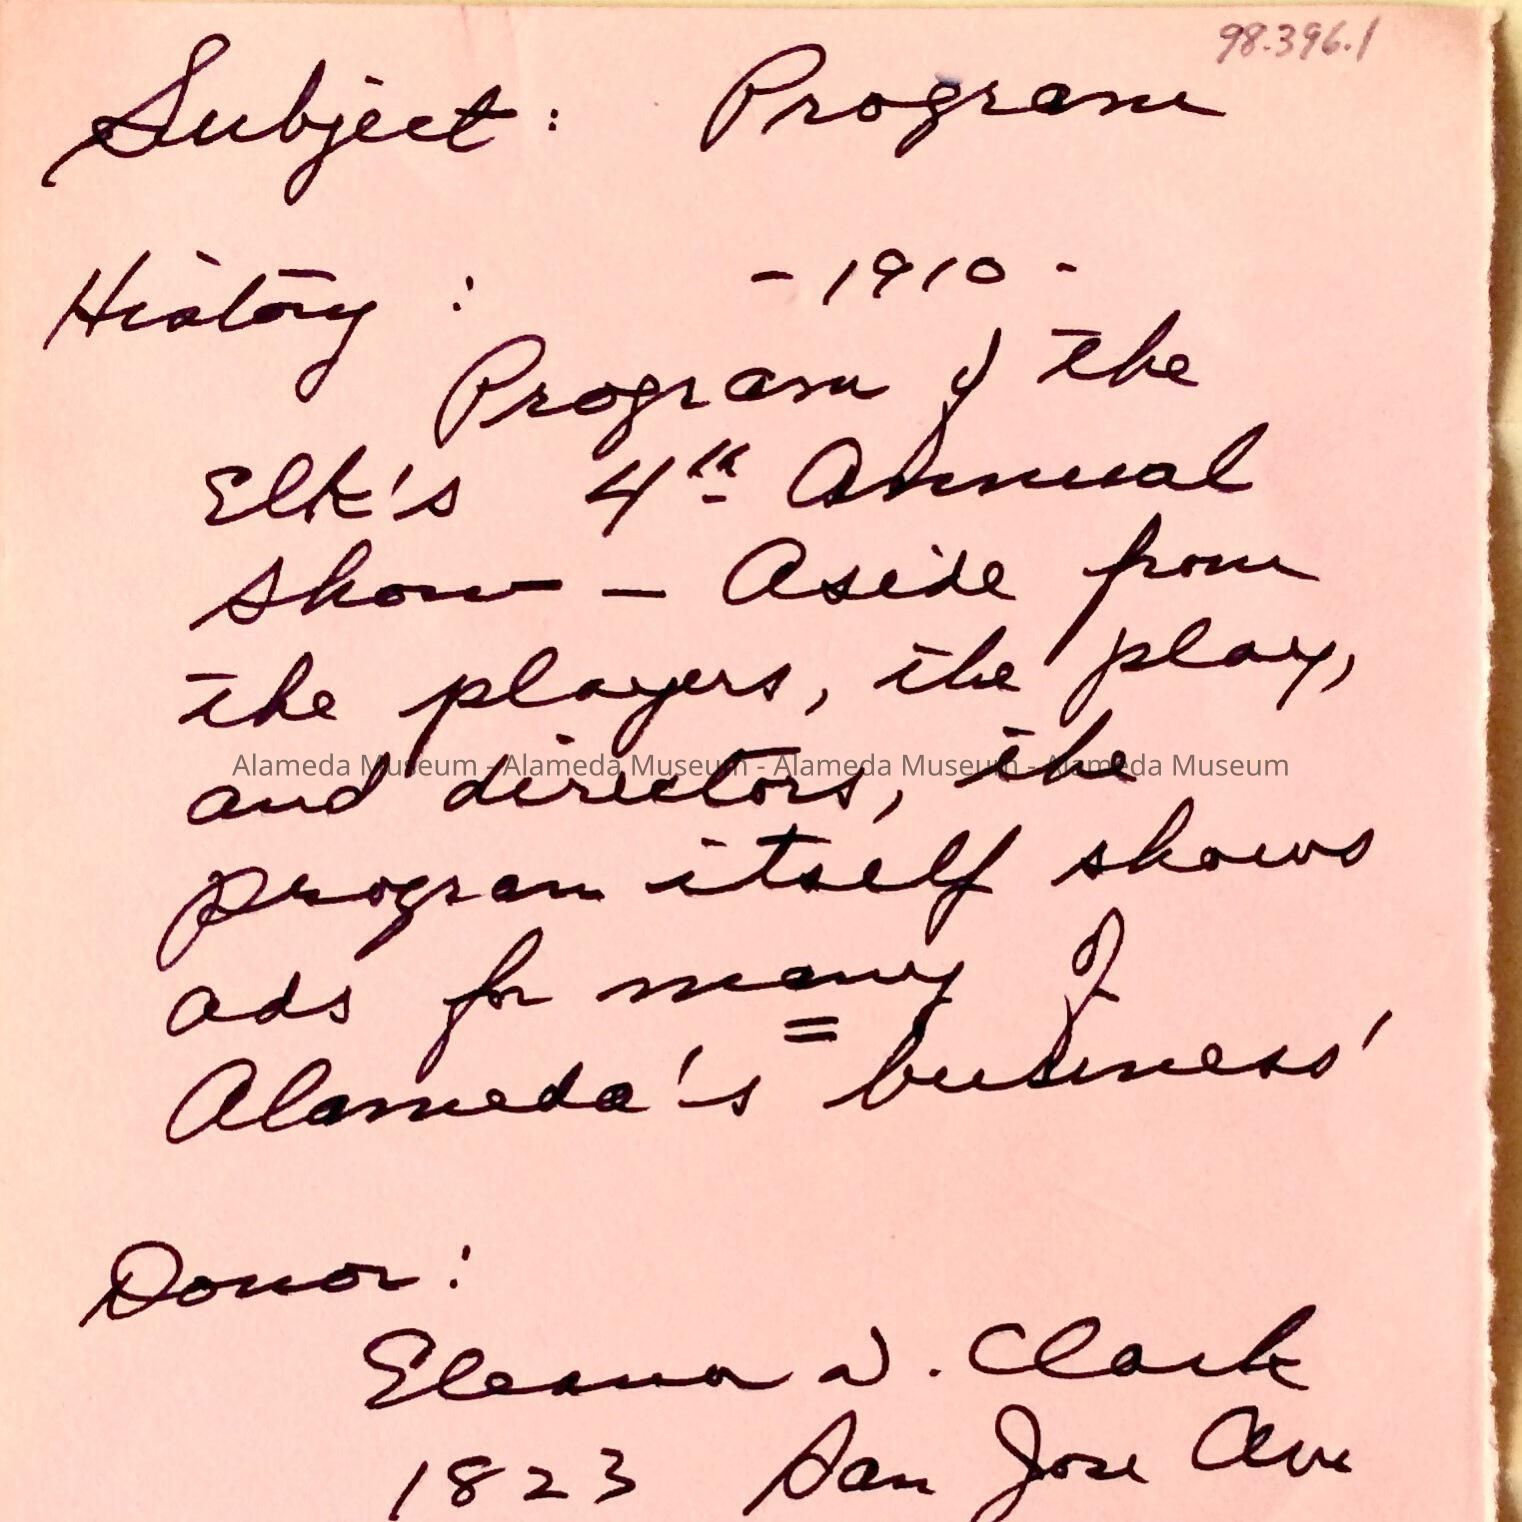 98.396.1
Subject: Program
History: - 1910 -
Program of the
Elk's 4th Annual
show — Aside from
the players, the play,
and directors, the
Alameda Museum - Alameda Museum - Alameda Museum - Alameda Museum
program itself shows
ads for many of
Alameda's business'
Donor:
Eleanor W. Clark
1823 San Jose Ave